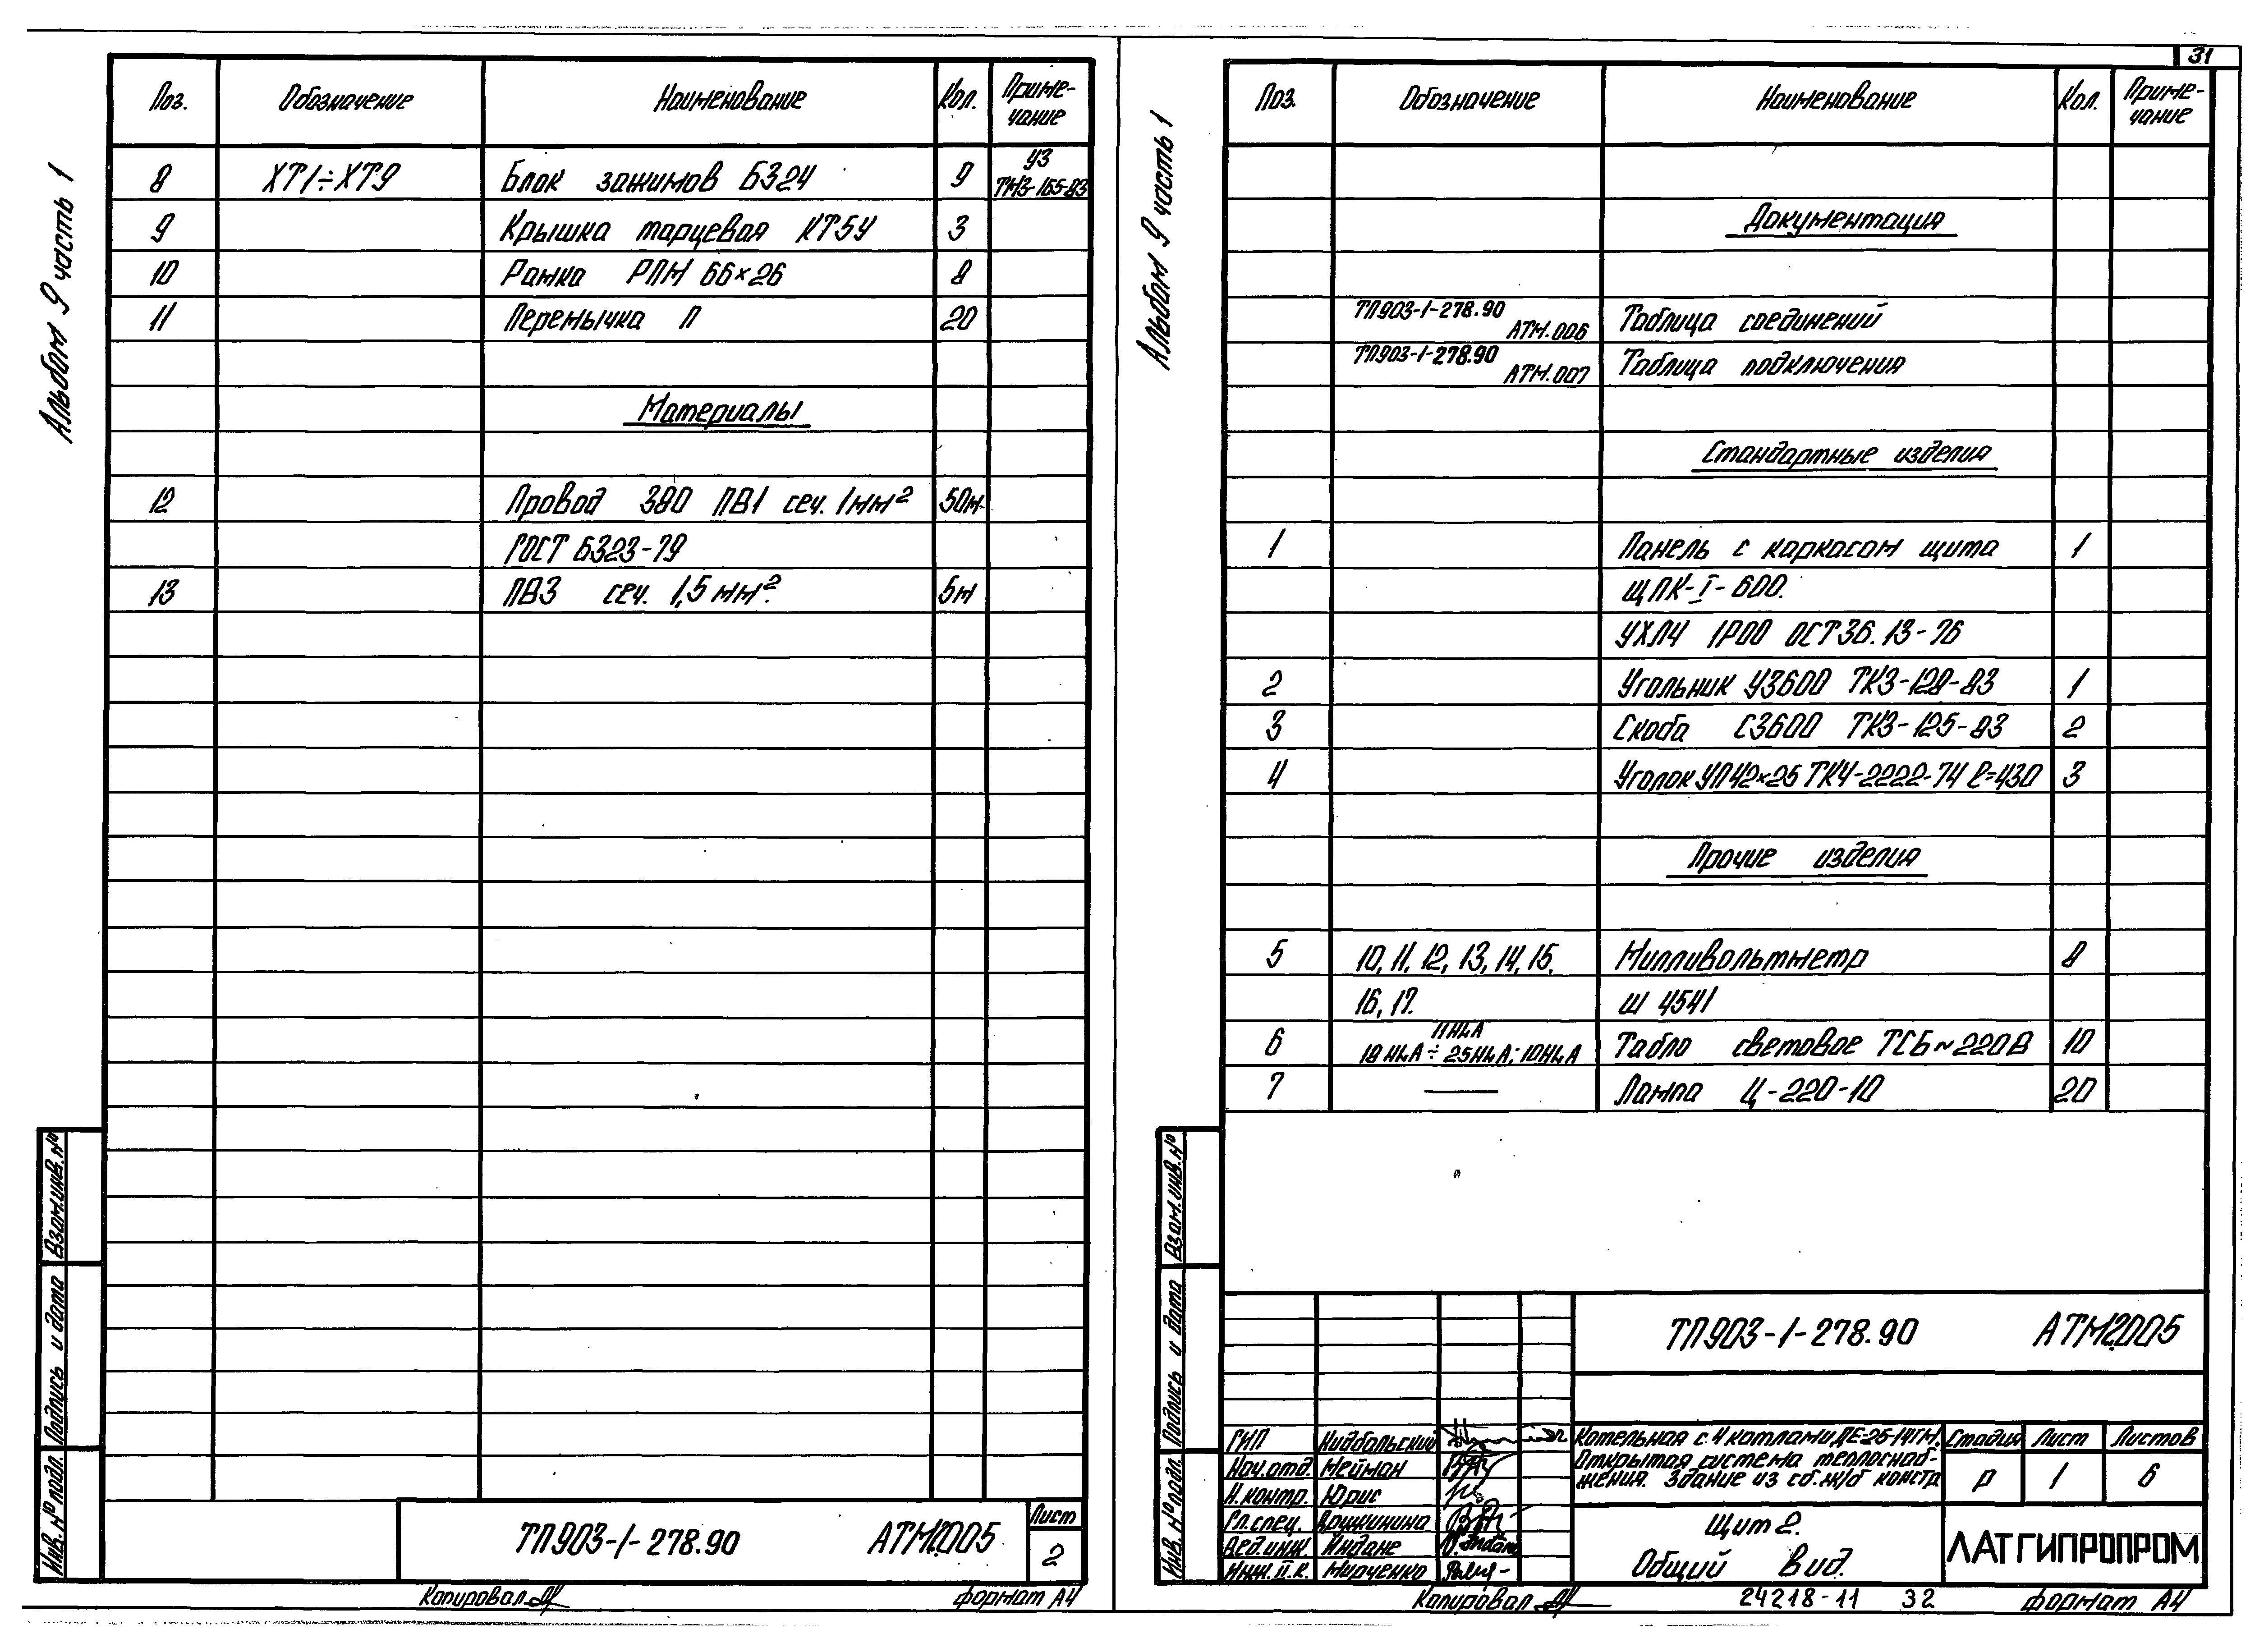 31
Альбом 9 часть 1
Поз. Обозначение Наименование Кол. Приме-
чание
8 ХТ1÷ХТ9 Блок зажимов БЗ24 9 У3
ТМ3-165-83
9 Крышка торцевая КТ5У 3
10 Рамка РПМ 66×26 8
11 Перемычка П 20
Материалы
12 Провод 380 ПВ1 сеч. 1мм² 50м
ГОСТ 6323-79
13 ПВ3 сеч. 1,5 мм². 5м
Взам.инв.№
Подпись и дата
Инв. № подл.
ТП903-1-278.90 АТМ2.005
Лист
2
Копировал
формат А4
Альбом 9 часть 1
Поз. Обозначение Наименование Кол. Приме-
чание
Документация
ТП903-1-278.90
АТМ.006 Таблица соединений
ТП903-1-278.90
АТМ.007 Таблица подключения
Стандартные изделия
1 Панель с каркасом щита 1
ЩПК-I-600.
УХЛ4 IP00 ОСТ36.13-76
2 Угольник У3600 ТК3-128-83 1
3 Скоба С3600 ТК3-125-83 2
4 Уголок УП42×25 ТК4-2222-74 ℓ=430 3
Прочие изделия
5 10, 11, 12, 13, 14, 15, Милливольтметр 8
16, 17. Ш 4541
6 11HLA
18HLA÷25HLA; 10HLA Табло световое ТСБ~220В 10
7 — Лампа Ц-220-10 20
Взам.инв.№
Подпись и дата
Инв. № подл.
ТП903-1-278.90 АТМ2.005
ГИП Нидбальский
Нач.отд. Мейман
Н.контр. Юрис
Гл.спец. Дружинина
Вед.инж. Яндане
Инж. II к. Мирченко
Котельная с 4 котлами ДЕ-25-14ГМ.
Открытая система теплоснаб-
жения. Здание из сб.ж/б констр.
Стадия Лист Листов
Р 1 6
Щит 2.
Общий вид.
ЛАТГИПРОПРОМ
Копировал
24218-11 32
формат А4